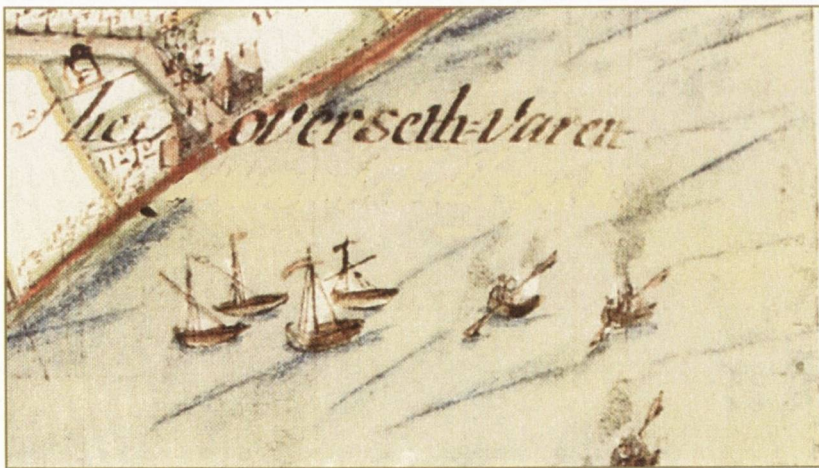 het overseth=Varen